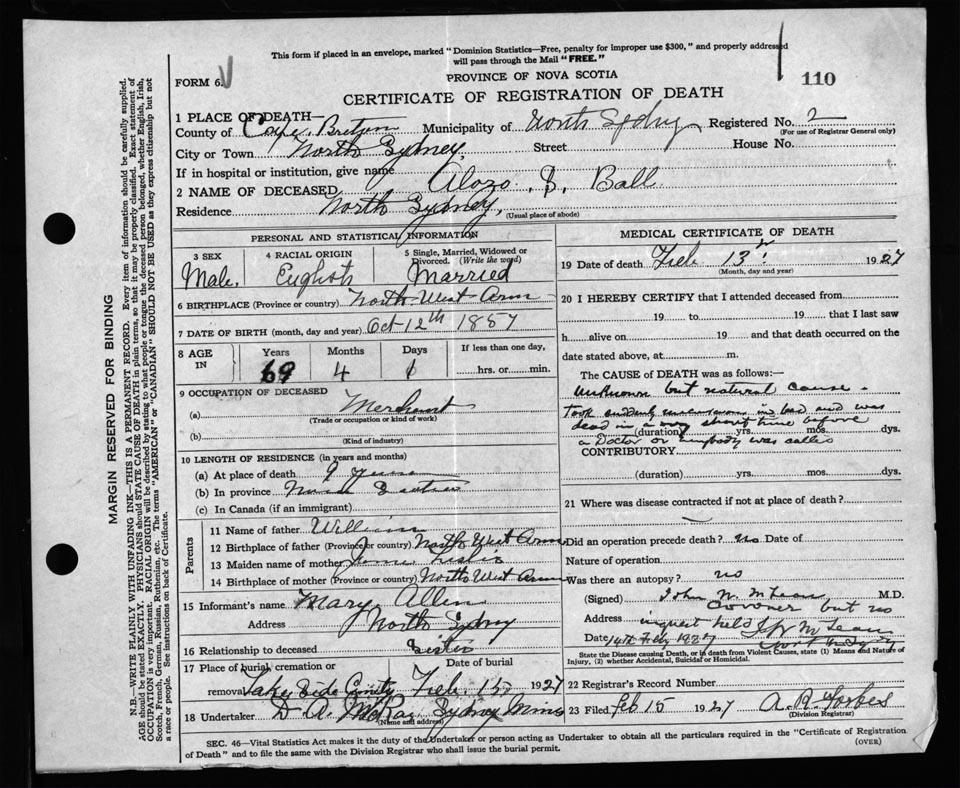 This form if placed in an envelope, marked "Dominion Statistics—Free, penalty for improper use $300," and properly addressed
will pass through the Mail "FREE."
FORM 6.
PROVINCE OF NOVA SCOTIA
110
CERTIFICATE OF REGISTRATION OF DEATH
1 PLACE OF DEATH—
County of Cape Breton Municipality of North Sydney Registered No. 2
(For use of Registrar General only)
City or Town North Sydney, Street House No.
If in hospital or institution, give name
2 NAME OF DECEASED Alozo. S. Ball
Residence North Sydney,
(Usual place of abode)
PERSONAL AND STATISTICAL INFORMATION
3 SEX 4 RACIAL ORIGIN 5 Single, Married, Widowed or Divorced. (Write the word)
Male. English Married
6 BIRTHPLACE (Province or country) North-West Arm
7 DATE OF BIRTH (month, day and year) Oct 12th 1857
8 AGE IN Years Months Days If less than one day,
69 4 1 hrs. or min.
9 OCCUPATION OF DECEASED
(a) Merchant
(Trade or occupation or kind of work)
(b)
(Kind of industry)
10 LENGTH OF RESIDENCE (in years and months)
(a) At place of death 9 Years
(b) In province Nova Scotia
(c) In Canada (if an immigrant)
Parents
11 Name of father William
12 Birthplace of father (Province or country) North West Arm
13 Maiden name of mother
14 Birthplace of mother (Province or country) North West Arm
15 Informant's name Mary Allen
Address North Sydney
16 Relationship to deceased Sister
17 Place of burial, cremation or removal Date of burial
Lake Side Cemetry Feb. 15 1927
18 Undertaker D. A. McRay Sydney Mines
(Name and address)
MEDICAL CERTIFICATE OF DEATH
19 Date of death Feb 13 1927
(Month, day and year)
20 I HEREBY CERTIFY that I attended deceased from
19 to 19 that I last saw
h alive on 19 and that death occurred on the
date stated above, at m.
The CAUSE of DEATH was as follows:—
unknown but natural cause.
took suddenly in bed and was
dead in a very short time before
(duration) yrs. mos. dys.
a Doctor or anybody was called
CONTRIBUTORY
(duration) yrs. mos. dys.
21 Where was disease contracted if not at place of death?
—
Did an operation precede death? No Date of
Nature of operation
Was there an autopsy? no
(Signed) John W. McLean M.D.
Coroner but no
Address inquest held J W McLean
Date 14th Feb 1927
State the Disease causing Death, or in death from Violent Causes, state (1) Means and Nature of Injury, (2) whether Accidental, Suicidal or Homicidal.
22 Registrar's Record Number
23 Filed Feb 15 1927 A. R. Forbes
(Division Registrar)
SEC. 46—Vital Statistics Act makes it the duty of the Undertaker or person acting as Undertaker to obtain all the particulars required in the "Certificate of Registration
of Death" and to file the same with the Division Registrar who shall issue the burial permit.
(OVER)
MARGIN RESERVED FOR BINDING
N.B.—WRITE PLAINLY WITH UNFADING INK—THIS IS A PERMANENT RECORD. Every item of information should be carefully supplied.
AGE should be stated EXACTLY. PHYSICIANS should STATE CAUSE OF DEATH in plain terms, so that it may be properly classified. Exact statement of
OCCUPATION is very important. RACIAL ORIGIN will be described by stating to what people or tongue the deceased person belonged, whether English, Irish,
Scotch, French, German, Russian, Ruthenian, etc. The terms "AMERICAN" or "CANADIAN" SHOULD NOT BE USED as they express citizenship but not
a race or people. See instructions on back of Certificate.